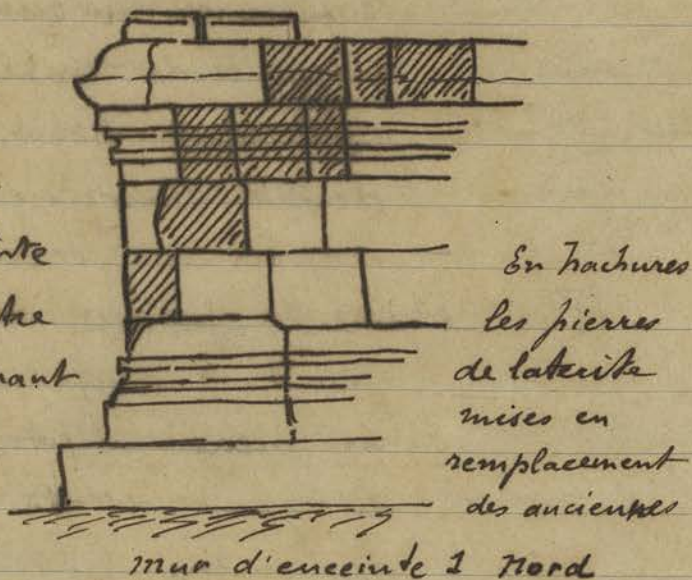 En hachures
les pierres
de latérite
mises en
remplacement
des anciennes
Mur d'enceinte 1 Nord